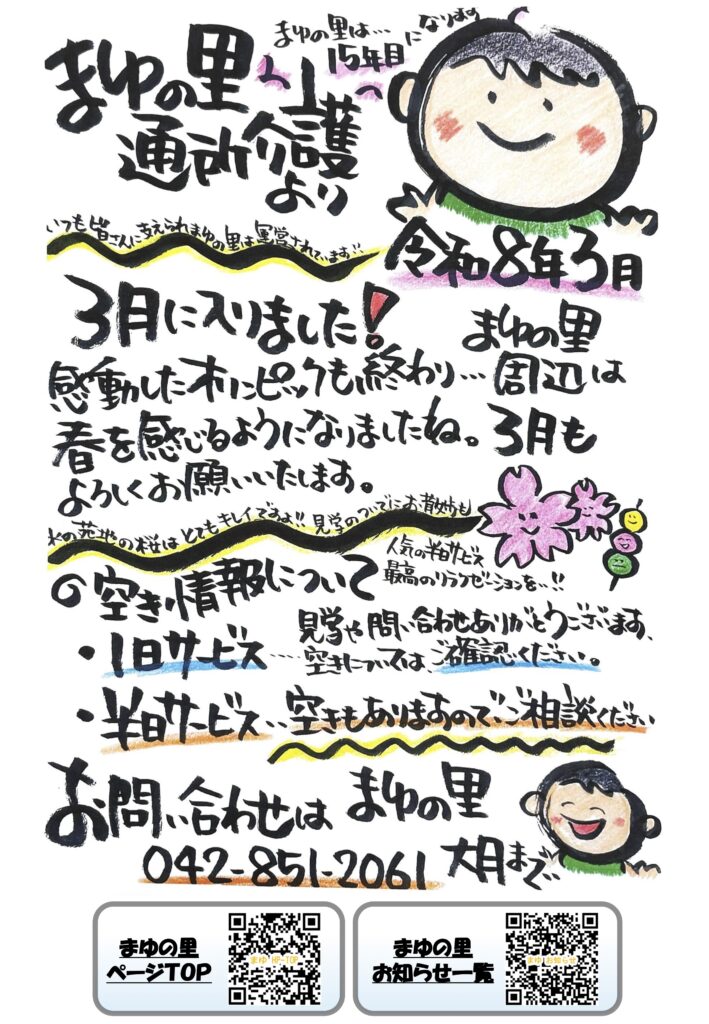 まゆの里は…
15年目
になります
まゆの里
通所介護
より
いつも皆さんに支えられまゆの里は運営されています!!
令和8年3月
3月に入りました!
感動したオリンピックも終わり…
春を感じるようになりましたね。
よろしくお願いいたします。
まゆの里
周辺は
3月も
水の苑地の桜はとてもキレイですよ!! 見学のついでにお散歩も
人気の半日サービス
最高のリラクゼーションを…!!
空き情報について
・1日サービス……
見学や問い合わせありがとうございます、
空きについては、ご確認ください。
・半日サービス…空きもありますので、ご相談ください
お問い合わせは まゆの里
042-851-2061 大月まで
まゆの里
ページTOP
まゆ HP-TOP
まゆの里
お知らせ一覧
まゆ お知らせ